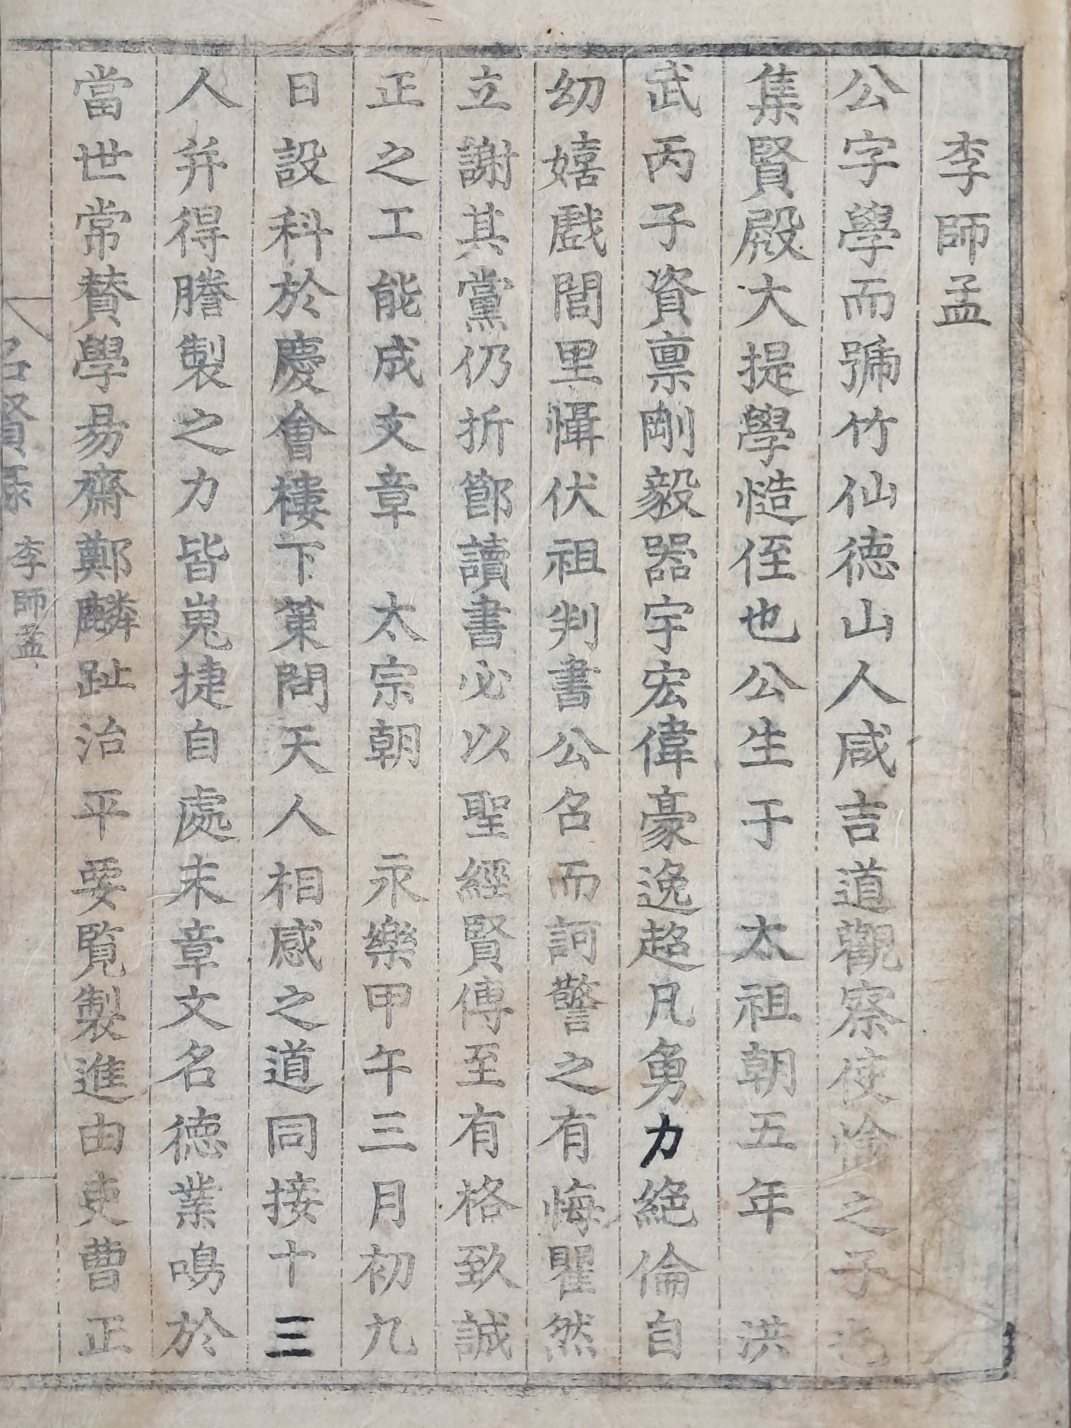 李師孟
公字學而號竹仙德山人咸吉道觀察使愉之子也
集賢殿大提學慥侄也公生于 太祖朝五年 洪
武丙子資禀剛毅器宇宏偉豪逸超凡勇力絕倫自
幼嬉戲閭里懾伏祖判書公名而訶警之有悔瞿然
立謝其黨仍折節讀書必以聖經賢傳至有格致誠
正之工能成文章 太宗朝 永樂甲午三月初九
日設科於慶會樓下策問天人相感之道同接十三
人并得謄製之力皆嵬捷自處末章文名德業鳴於
當世常贊學易齋鄭麟趾治平要覧製進由吏曹正
名賢錄 李師孟